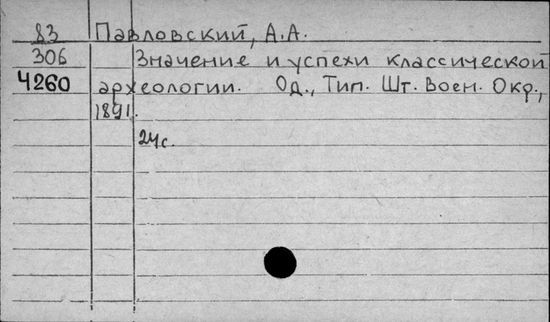 83 Павловский, А.А.
306 Значение и успехи классической
4260 археологии. Од., Тип. Шт. Воен. Окр.,
1891.
24с.